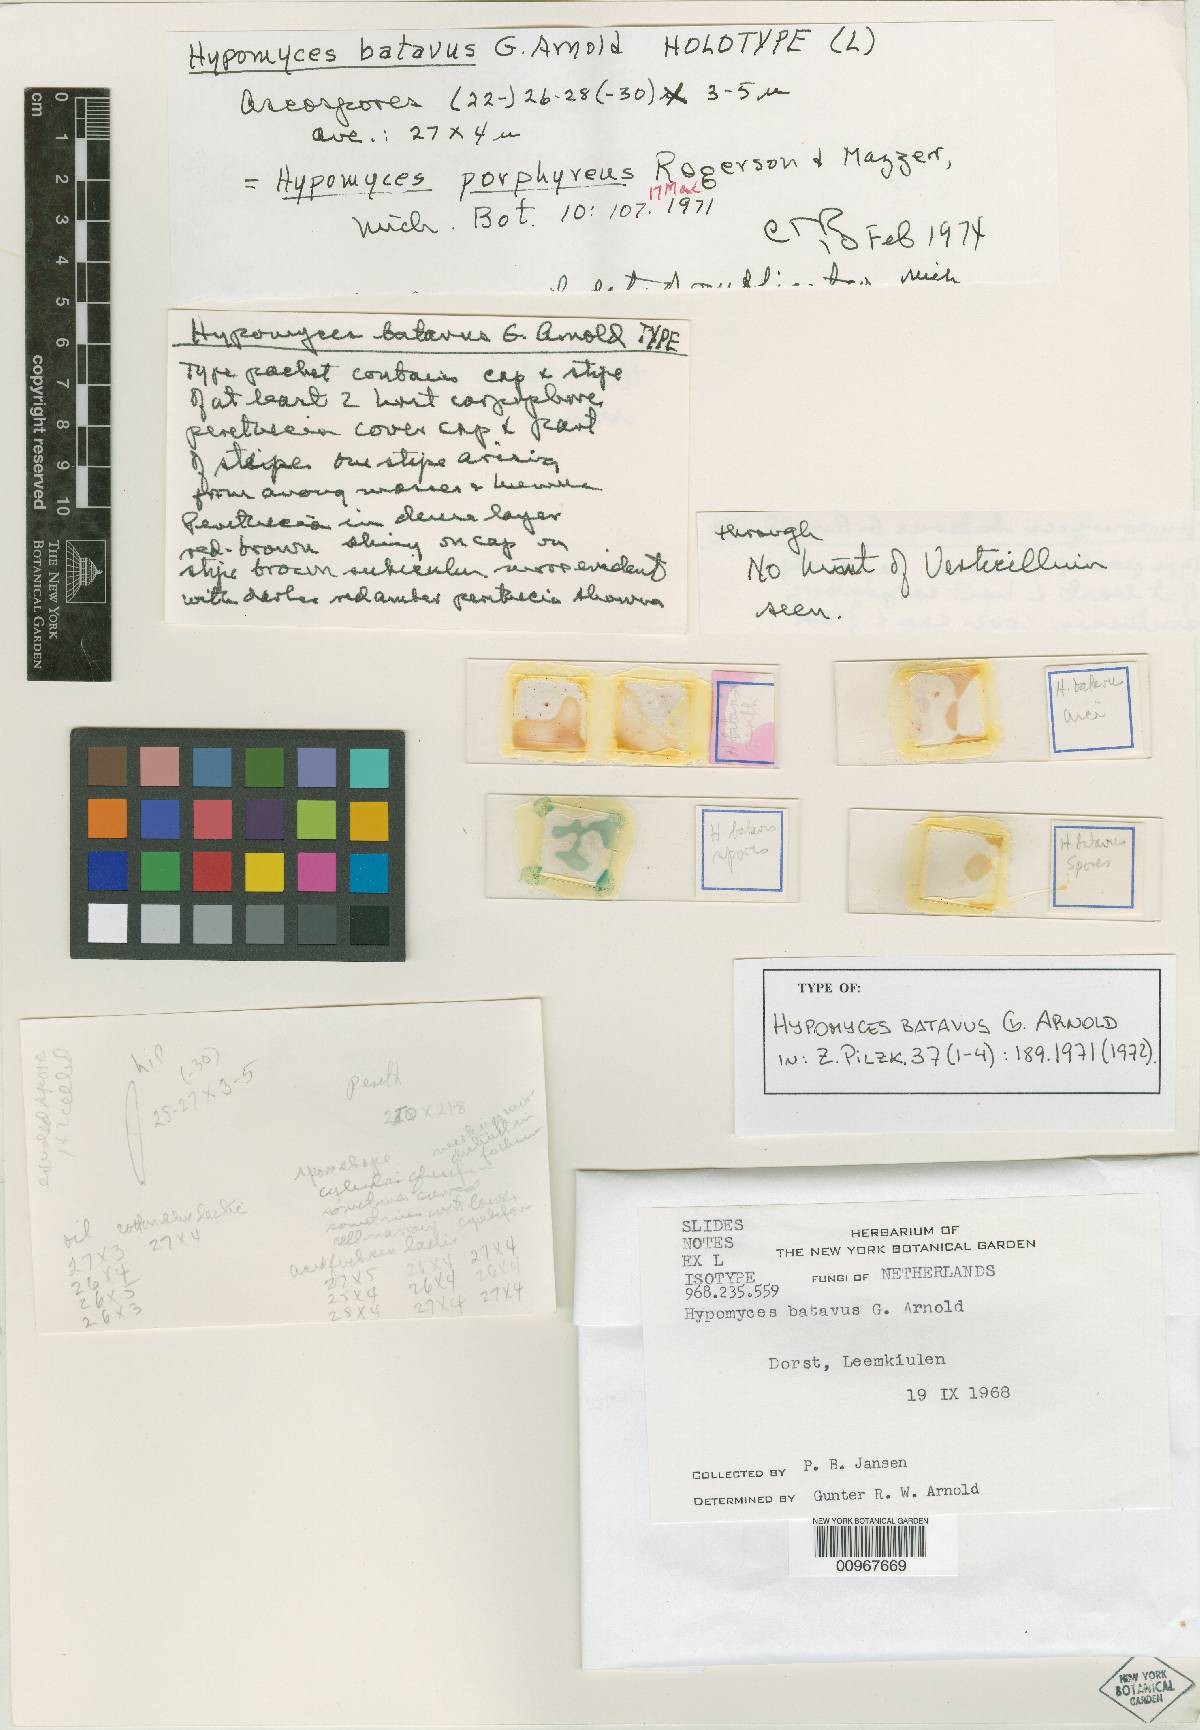 Hypomyces batavus G. Arnold HOLOTYPE (L)
Ascospores (22-) 26-28 (-30) x 3-5 µ
ave.: 27 x 4 µ
= Hypomyces porphyreus Rogerson & Mazzer,
17 Mar
Mich. Bot. 10: 107. 1971
CTR Feb 1974
Mich
cm
0
1
2
3
4
5
6
7
8
9
10
copyright reserved
THE NEW YORK
BOTANICAL GARDEN
Hypomyces batavus G. Arnold TYPE
Type packet contains cap & stipe
of at least 2 host carpophores
perithecia cover cap & part
of stipe one stipe arising
from among mosses &
Perithecia in dense layer
red-brown shiny on cap on
stipe brown subiculum more evident
with darker red amber perithecia showing
through
No hint of Verticillium
seen.
H. batavus
perith
H. batavus
asci
H batavus
spores
H batavus
Spores
TYPE OF:
HYPOMYCES BATAVUS G. ARNOLD
IN: Z. PILZK. 37 (1-4) : 189. 1971 (1972).
extruded spore
1 & 2 celled
(-30)
25-27 x 3-5
perith
x 218
spore shape
cylindric
sometimes curved
sometimes with lower
cell narrow
oil
27 x 3
26 x 4
26 x 5
26 x 3
cotton blue lactic
27 x 4
acid fuchsin lactic
27 x 5 26 x 4 27 x 4
25 x 4 26 x 4 26 x 4
28 x 4 27 x 4 27 x 4
SLIDES
NOTES
EX L
ISOTYPE
968.235.559
HERBARIUM OF
THE NEW YORK BOTANICAL GARDEN
FUNGI OF NETHERLANDS
Hypomyces batavus G. Arnold
Dorst, Leemkiulen
19 IX 1968
COLLECTED BY P. B. Jansen
DETERMINED BY Gunter R. W. Arnold
NEW YORK BOTANICAL GARDEN
00967669
NEW YORK
BOTANICAL
GARDEN